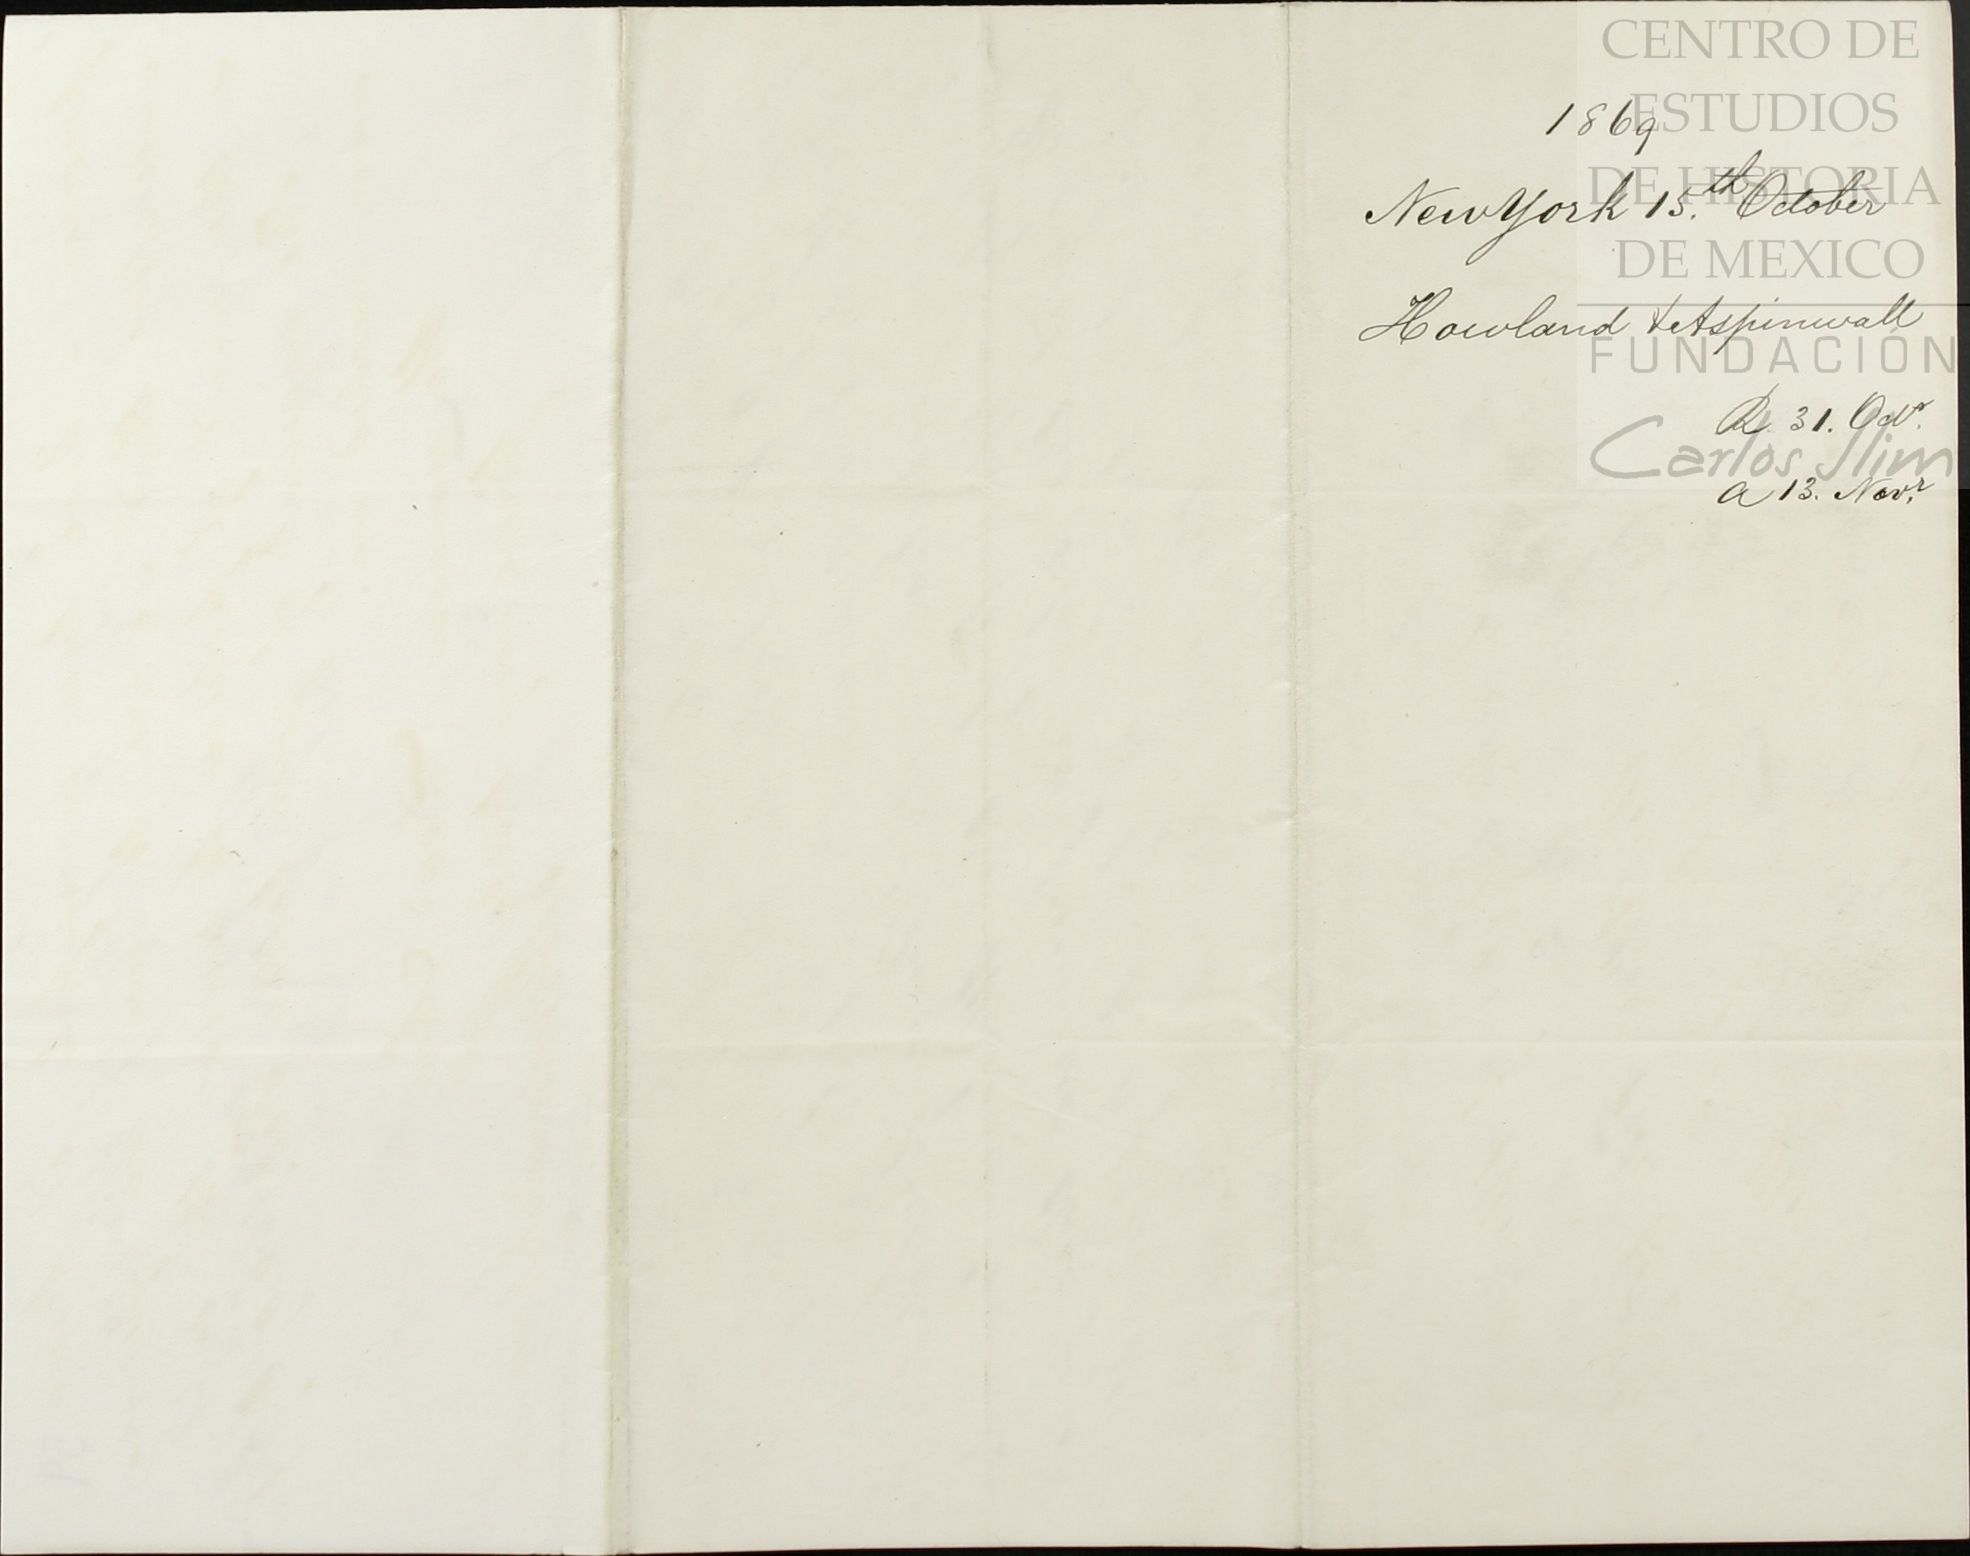 CENTRO DE
ESTUDIOS
DE HISTORIA
DE MEXICO
FUNDACIÓN
Carlos Slim
1869
New York 15.th October
Howland & Aspinwall
R. 31. Octr.
a 13. Novr.